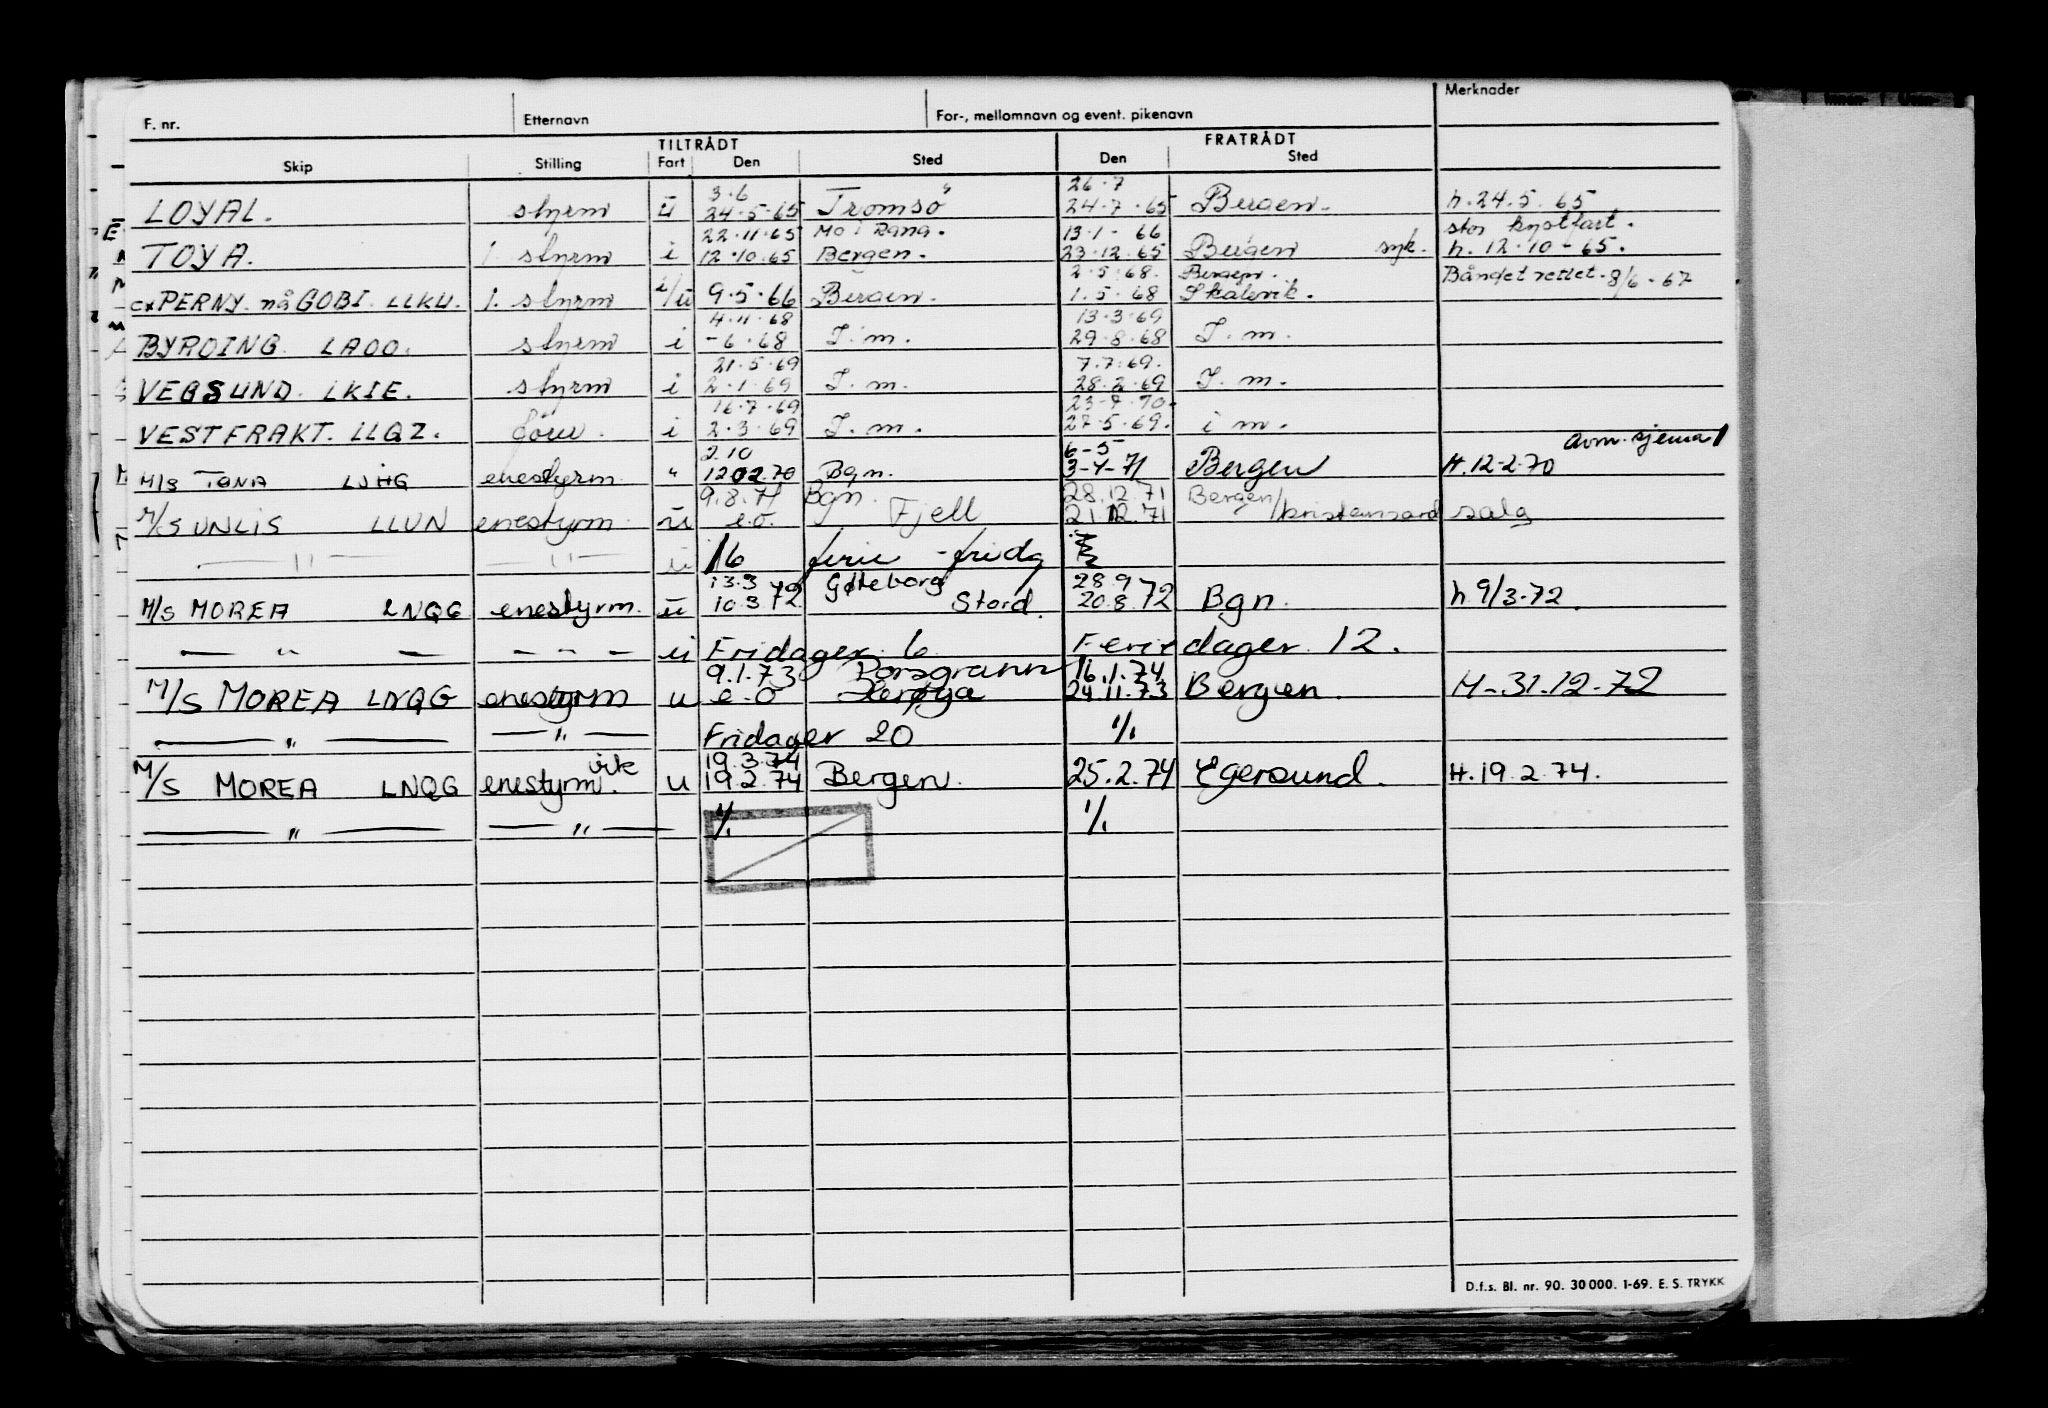 F. nr. Etternavn For-, mellomnavn og event. pikenavn Merknader
TILTRÅDT FRATRÅDT
Skip Stilling Fart Den Sted Den Sted
3.6 26.7
LOYAL. styrm ū 24.5.65 Tromsö 24.7.65 Bergen. h. 24.5.65
22.11.65 Mo i Rana. 13.1-66 stor kystfart.
TOYA. 1. styrm i 12.10.65 Bergen. 23.12.65 Bergen syk. h. 12.10-65.
2.5.68. Bergen. Båndet rettet 8/6-67
ex PERNY. nå GOBI. LLKU. 1. styrm i/ū 9.5.66 Bergen. 1.5.68 Skålevik.
4.11.68 13.3.69
BYRDING. LAOO. styrm i -6.68 I.m. 29.8.68 I.m.
21.5.69 7.7.69.
VEGSUND. LKIE. styrm i 2.1.69 I.m. 28.2.69 I.m.
16.7.69 23.7.70.
VESTFRAKT. LLQZ. i 2.3.69 I.m. 27.5.69. i m.
2.10 6-5
M/S TONA LJHG enestyrm " 12 02.70 Bgn. 3-4-71 Bergen H. 12-2-70
9.8.71 Bgn. 28.12.71 Bergen/
M/S UNLIS LLUN enestyrm ū e.o. Fjell 21.12.71 kristiansand salg
— " — — " — ū 16 ferie -fridg
13.3 Gøteborg 28.9
M/S MOREA LNQG enestyrm. ū 10.3 72 Stord. 20.8 72 Bgn. h 9/3-72.
— " — — " — u Fridager 6 Feriedager 12.
9.1.73 Porsgrunn 16.1.74
M/S MOREA LNQG enestyrm u e-o Herøya 24.11.73 Bergen. H-31.12.72
— " — — " — Fridager 20 1/.
vik 19.3.74
M/S MOREA LNQG enestyrm. u 19.2.74 Bergen. 25.2.74 Egersund. H. 19.2.74.
— " — — " — 1/. 1/.
D.f.s. Bl. nr. 90. 30 000. 1-69. E. S. TRYKK